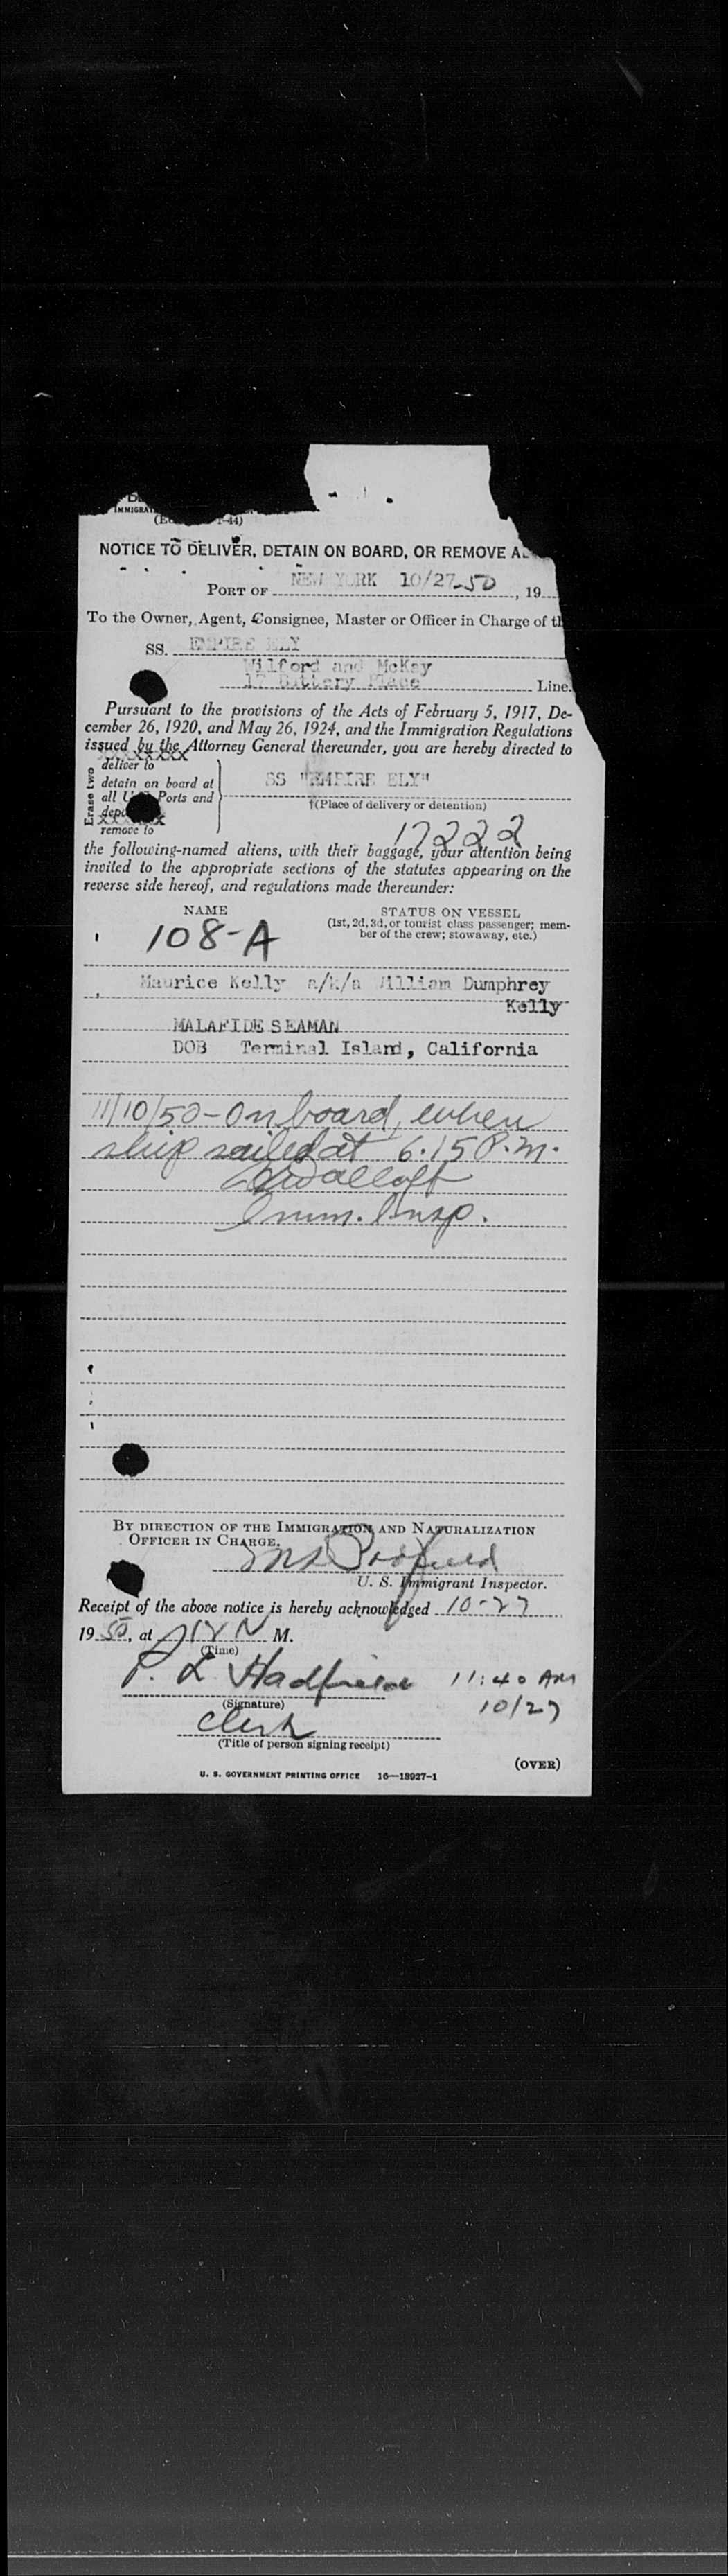 IMMIGRAT
-44)
NOTICE TO DELIVER, DETAIN ON BOARD, OR REMOVE
PORT OF NEW YORK 10/27-50, 19
To the Owner, Agent, Consignee, Master or Officer in Charge of
SS. EMPIRE ELY
Wilford and McKay
17 Battery Place Line.
Pursuant to the provisions of the Acts of February 5, 1917, De-
cember 26, 1920, and May 26, 1924, and the Immigration Regulations
issued by the Attorney General thereunder, you are hereby directed to
Erase two
deliver to
detain on board at
all Ports and
remove to
SS "EMPIRE ELY"
†(Place of delivery or detention)
17222
the following-named aliens, with their baggage, your attention being
invited to the appropriate sections of the statutes appearing on the
reverse side hereof, and regulations made thereunder:
NAME
STATUS ON VESSEL
(1st, 2d, 3d, or tourist class passenger; mem-
ber of the crew; stowaway, etc.)
108-A
Maurice Kelly a/k/a William Dumphrey
Kelly
MALAFIDE SEAMAN
DOB Terminal Island, California
11/10/50-On board, when
ship sailed at 6.15 P.M.
Imm. Insp.
BY DIRECTION OF THE IMMIGRATION AND NATURALIZATION
OFFICER IN CHARGE.
U. S. Immigrant Inspector.
Receipt of the above notice is hereby acknowledged 10-27
1950, at 12 N M.
(Time)
P. L Hadfield 11:40 AM
(Signature) 10/27
Clerk
(Title of person signing receipt)
(OVER)
U. S. GOVERNMENT PRINTING OFFICE 16—18927-1